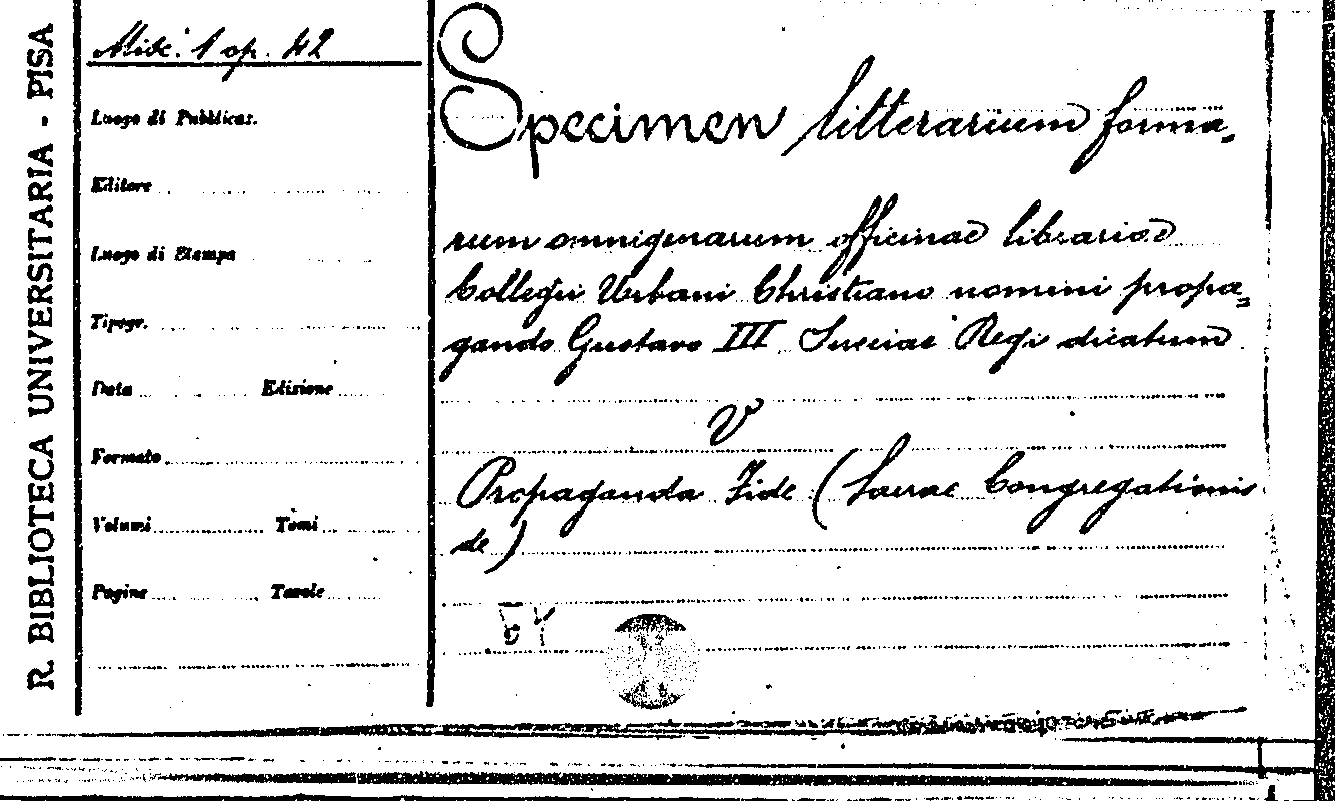 R. BIBLIOTECA UNIVERSITARIA - PISA
Misc. 1 op. 42
Luogo di Pubblicaz.
Editore
Luogo di Stampa
Tipogr.
Data Edizione
Formato
Volumi Tomi
Pagine Tavole
Specimen litterarium forma=
rum omnigenarum officinae librariae
Collegii Urbani Christiano nomini propa=
gando Gustavo III Sueciae Regi dicatum
V
Propaganda Fide (Sacrae Congregationis
de)